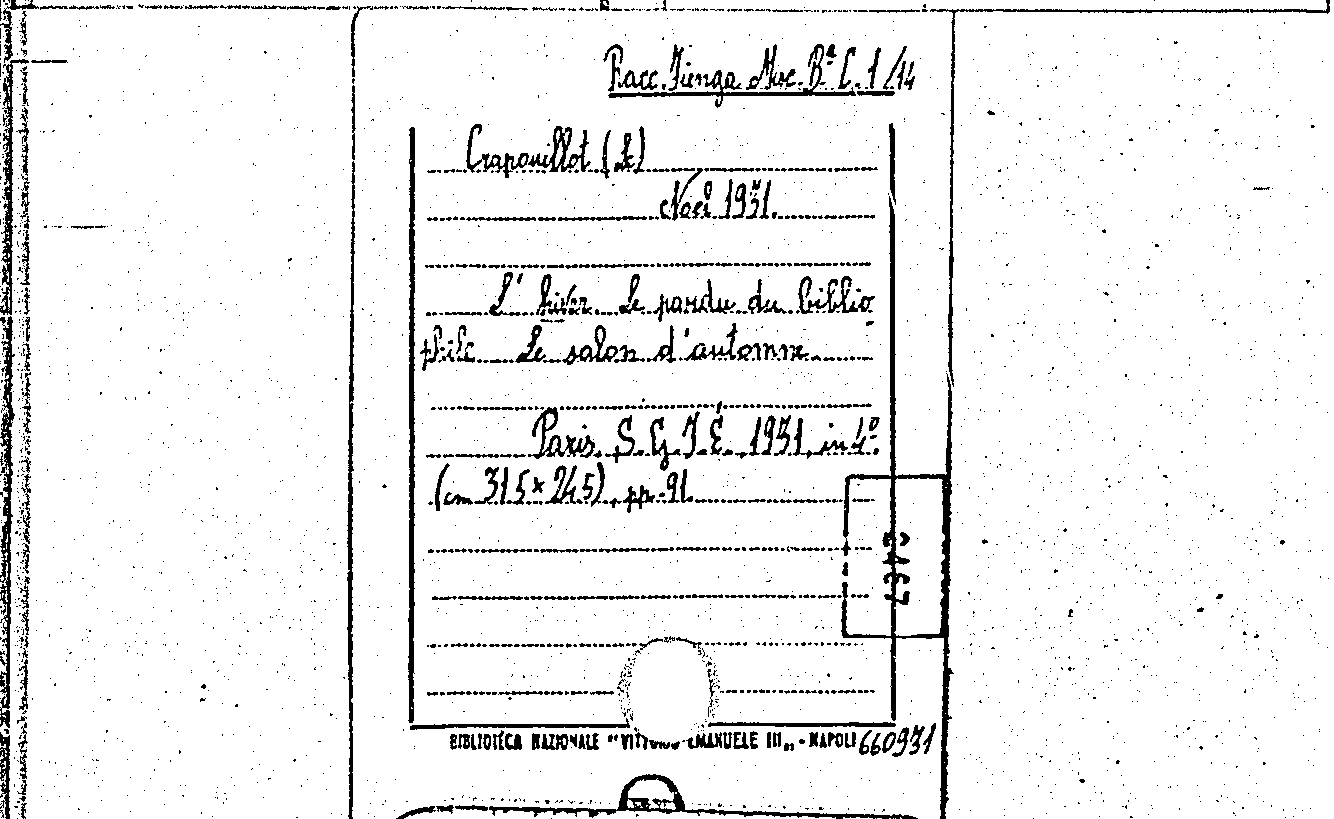 Racc. Fienga Misc. Bª C. 1/14
Crapouillot (Le)
Noël 1931.
L' hiver. Le pardu du biblio
phile Le salon d'automne
Paris, S. G. I. É. 1931, in 4º.
(cm 31.5 x 24.5), pp. 91.
3467
BIBLIOTECA NAZIONALE "VITTORIO EMANUELE III„ - NAPOLI 660931